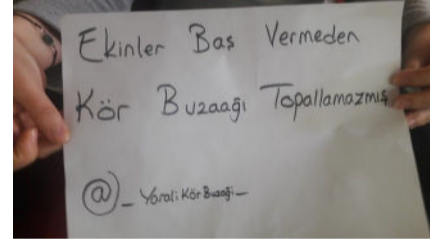 Ekinler Baş Vermeden
Kör Buzaağı Topallamazmış
@_YaralıKörBuzağı_